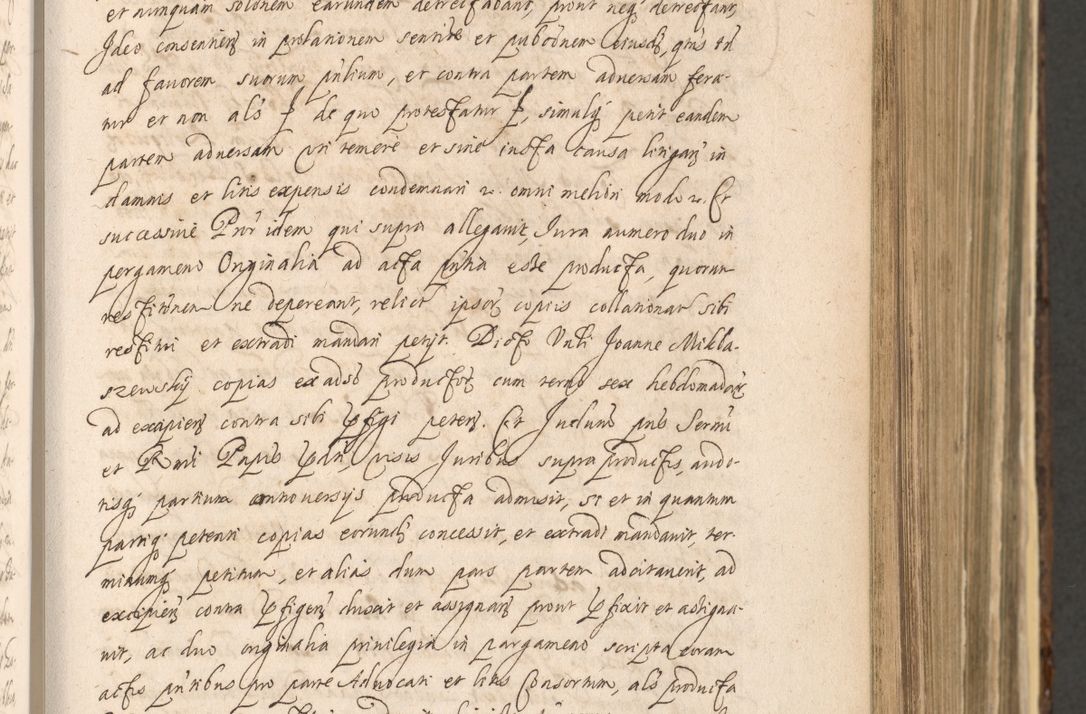 et nunquam solonem earundem detrectabant, prout neq detrectant,
Ideo consentien in prolationem sentite et pubodnem eiusd, qtus tn
ad favorem suorum pnlium, et contra partem adversam fera-
tur et non als de quo protestatur, simulq petit eandem
partem adversam uti temere et sine iusta causa litigan in
damnis et litis expensis condemnari &c. omni meliori modo &c. Et
successive Pnr idem qui supra allegavit, Iura numero duo in
pergameno Originalia ad acta pntia esse producta, quorum
restitonem ne depereant, relict ipsor copiis collationat sibi
restitui et extradi mandari petijt. Dict Vnli Joanne Mikla-
szewskij copias ex adso productor cum termo sex hebdomador
ad excipien contra sibi pfigi peten. Et Judium pns Sermi
et Rndi Papie, visis Iuribus supra productis, audi-
tisq partium controversijs producta admisit, si et in quantum
partiq petenti copias eorund concessit, et extradi mandavit, ter-
minumq petitum, et alias dum pars partem adcitaverit, ad
excipien contra pfigen duxit et assignan prout pfixit et assigna-
vit, ac duo originalia privilegia in pargameno scripta coram
actis pntibus pro parte Advocati et litis Consortum, als producta